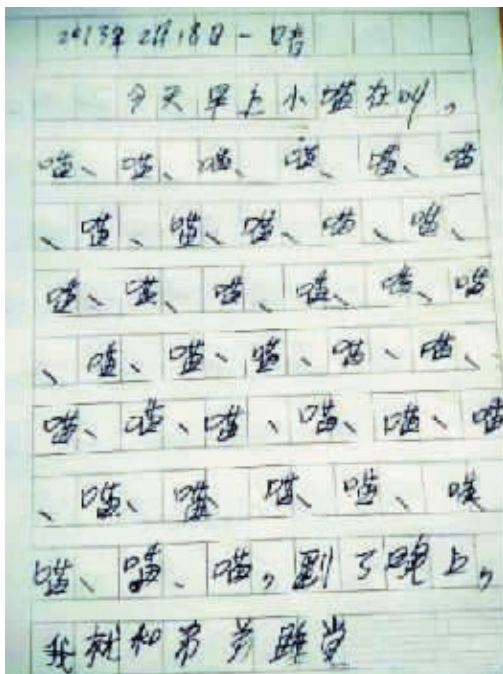 2013年2月18日一 晴
今天早上小喵在叫，
喵、喵、喵、喵、喵、喵
、喵、喵、喵、喵、喵、
喵、喵、喵、喵、喵、喵
、喵、喵、喵、喵、喵、
喵、喵、喵、喵、喵、喵
、喵、喵、喵、喵、喵
喵、喵、喵，到了晚上，
我就和弟弟睡觉